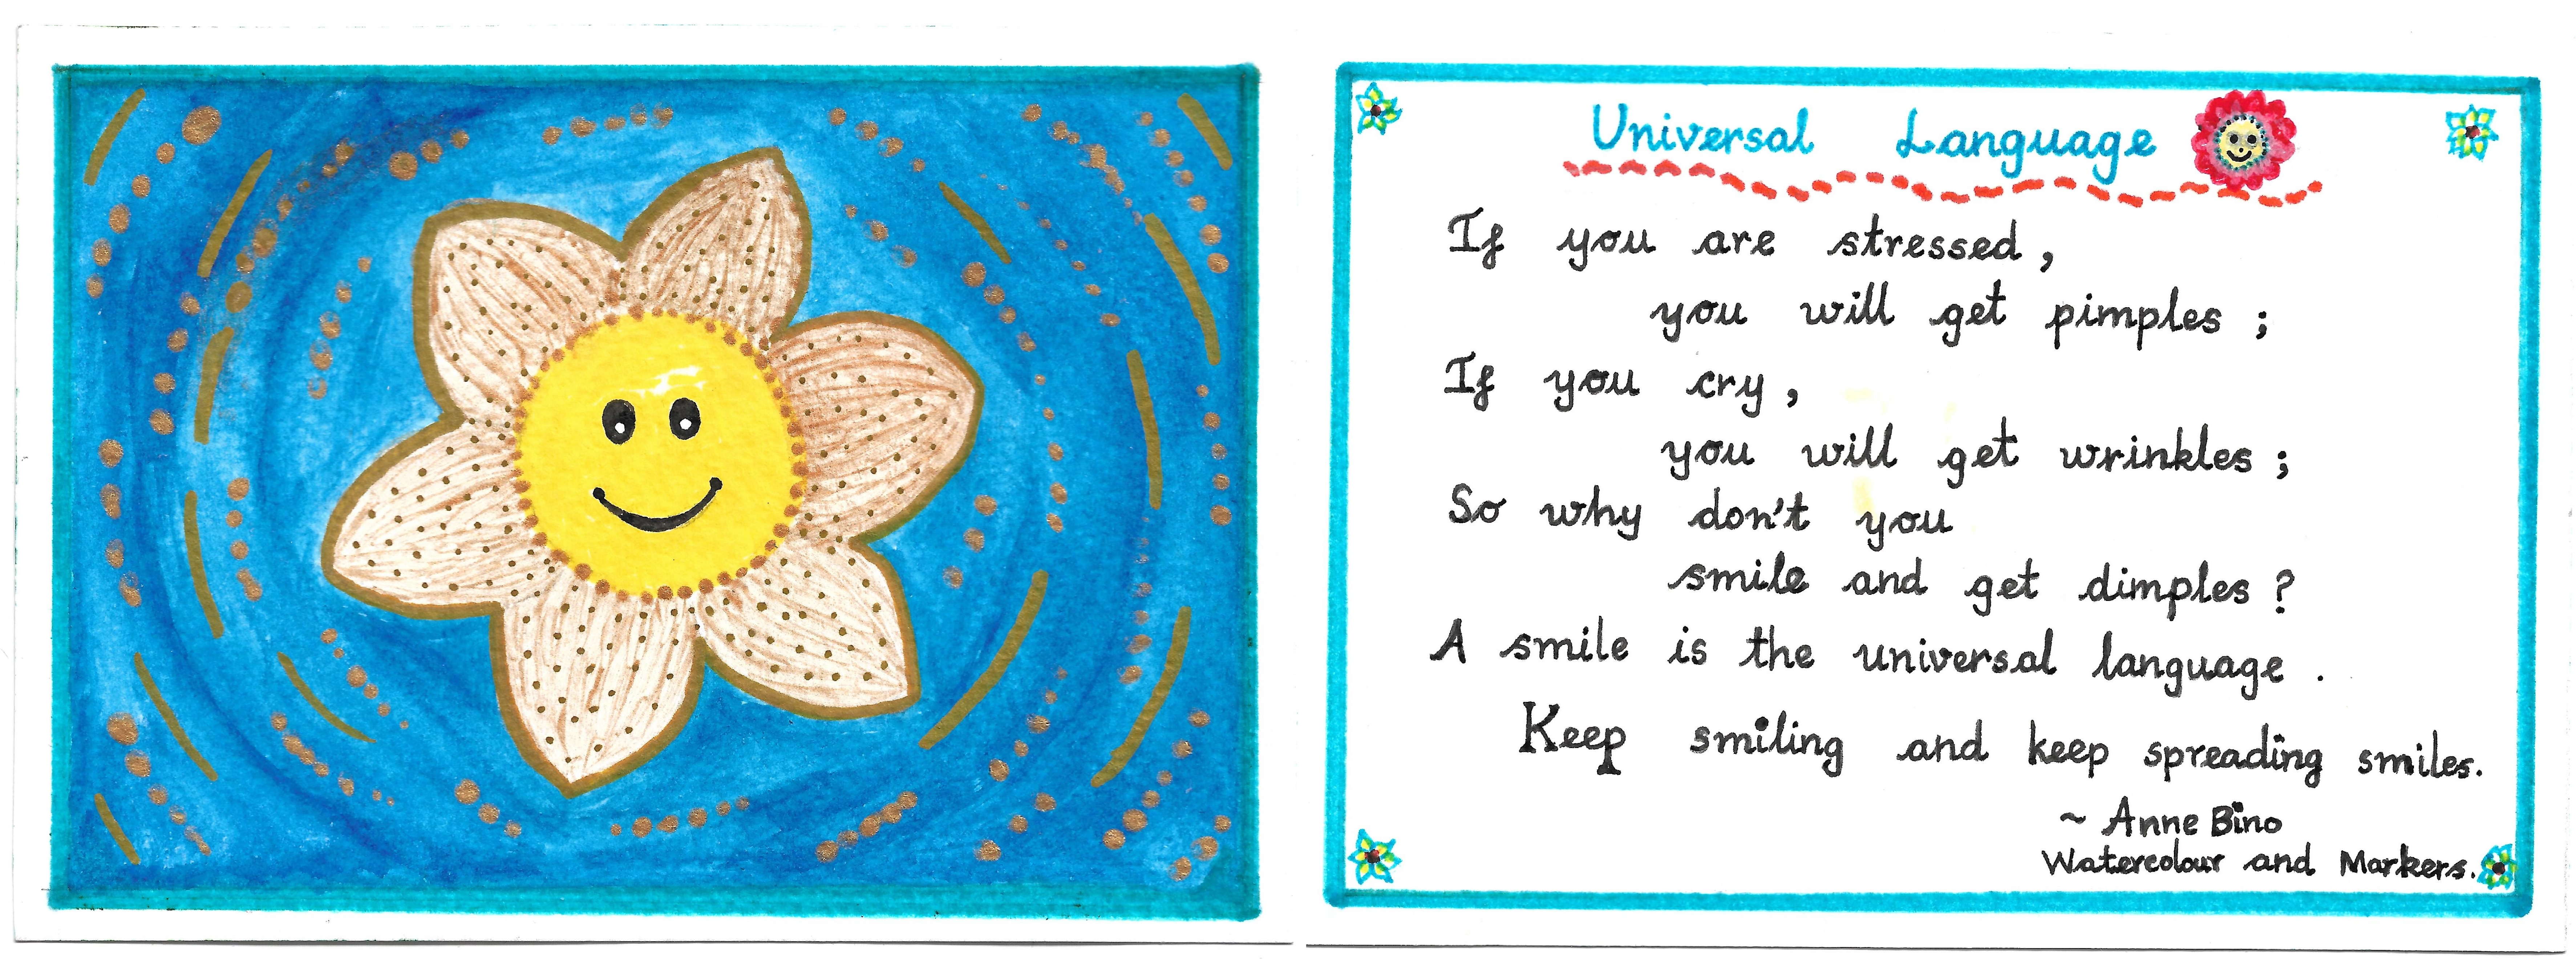 Universal Language
If you are stressed,
you will get pimples ;
If you cry,
you will get wrinkles ;
So why don't you
smile and get dimples ?
A smile is the universal language .
Keep smiling and keep spreading smiles.
~ Anne Bino
Watercolour and Markers.